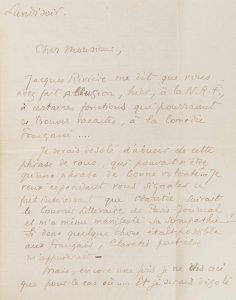 Lundi soir.
Cher Monsieur,
Jacques Rivière me dit que vous
avez fait allusion, hier, à la N.R.F.,
à certaines fonctions qui pourraient
se trouver vacantes, à la Comédie
Française....
Je serais désolé d'abuser de cette
phrase de vous, qui pouvait n'être
qu'une phrase de bonne volonté... Je
veux cependant vous signaler ce
fait intéressant que Claretie suivait
le Courrier littéraire de Paris-Journal
et m'a même manifesté sa sympathie!
Si donc quelque chose était possible
aux Français, Claretie peut-être
m'appuierait.
Mais, encore une fois je ne dis ceci
que pour le cas où.... Et je serais désolé